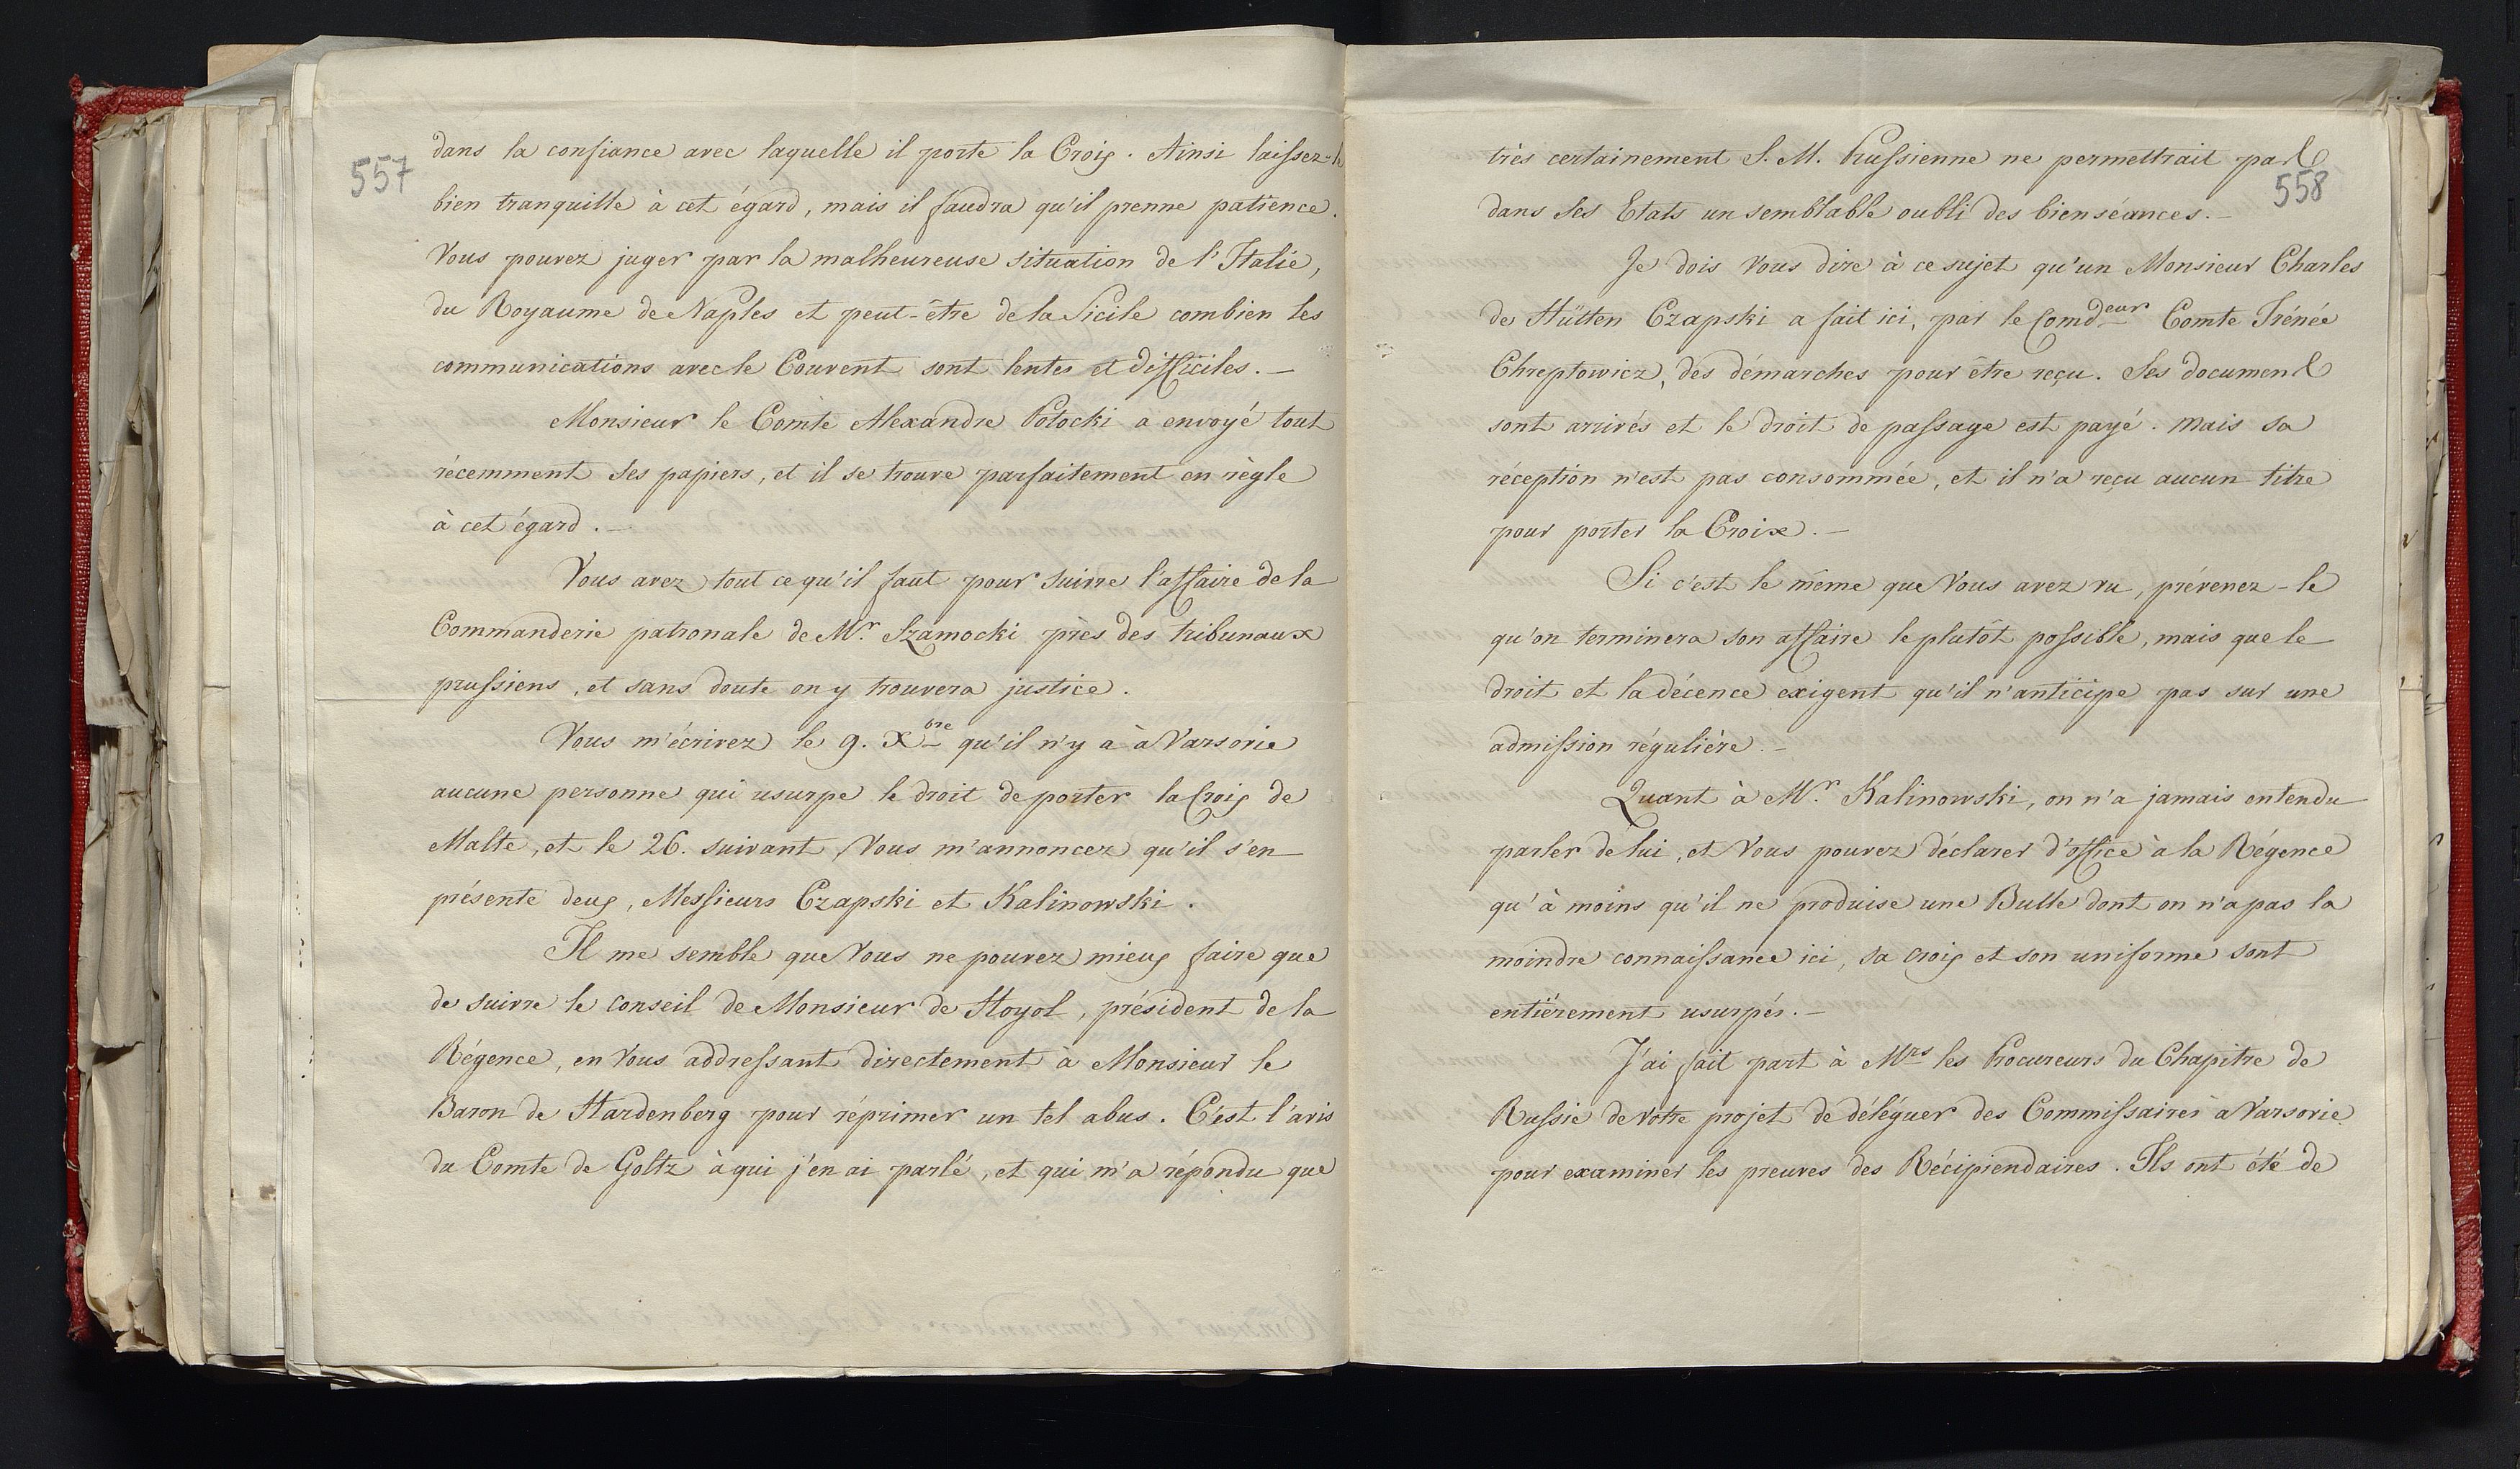 557
dans la confiance avec laquelle il porte la Croix. Ainsi laissez-le
bien tranquille à cet égard, mais il faudra qu'il prenne patience.
Vous pouvez juger par la malheureuse situation de l'Italie,
du Royaume de Naples et peut-être de la Sicile combien les
communications avec le Couvent sont lentes et difficiles. –
Monsieur le Comte Alexandre Potocki a envoyé tout
récemment ses papiers, et il se trouve parfaitement en règle
à cet égard. –
Vous avez tout ce qu'il faut pour suivre l'affaire de la
Commanderie patronale de Mr. Szamocki près des tribunaux
prussiens, et sans doute on y trouvera justice.
Vous m'écrivez le 9. Xbre qu'il n'y a à Varsovie
aucune personne qui usurpe le droit de porter la Croix de
Malte, et le 26. suivant, Vous m'annoncez qu'il s'en
présente deux, Messieurs Czapski et Kalinowski.
Il me semble que Vous ne pouvez mieux faire que
de suivre le conseil de Monsieur de Hoyol, président de la
Régence, en Vous addressant directement à Monsieur le
Baron de Hardenberg pour réprimer un tel abus. C'est l'avis
du Comte de Goltz à qui j'en ai parlé, et qui m'a répondu que
558
très certainement S. M. Prussienne ne permettrait pas
dans ses Etats un semblable oubli des bienséances. –
Je dois Vous dire à ce sujet qu'un Monsieur Charles
de Hütten Czapski a fait ici, par le Comdeur Comte Irénée
Chreptowicz, des démarches pour être reçu. Ses documens
sont arrivés et le droit de passage est payé. Mais sa
réception n'est pas consommée, et il n'a reçu aucun titre
pour porter la Croix. –
Si c'est le même que Vous avez vu, prévenez-le
qu'on terminera son affaire le plutôt possible, mais que le
droit et la décence exigent qu'il n'anticipe pas sur une
admission régulière. –
Quant à Mr. Kalinowski, on n'a jamais entendu
parler de lui, et Vous pouvez déclarer d'office à la Régence
qu'à moins qu'il ne produise une Bulle dont on n'a pas la
moindre connaissance ici, sa croix et son uniforme sont
entièrement usurpés. –
J'ai fait part à Mrs les Procureurs du Chapitre de
Russie de votre projet de déléguer des Commissaires à Varsovie
pour examiner les preuves des Récipiendaires. Ils ont été de